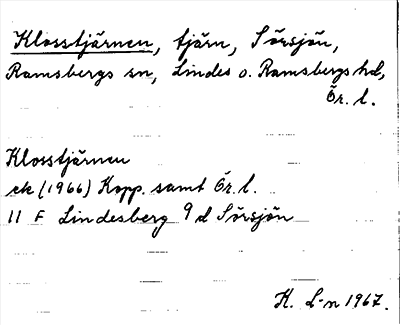 Klosstjärnen, tjärn, Sörsjön,
Ramsbergs sn, Lindes o. Ramsbergs hd,
Ör. l.
Klosstjärnen
ek (1966) Kopp. samt Ör. l.
11 F Lindesberg 9 d Sörsjön
H. L-n 1967.